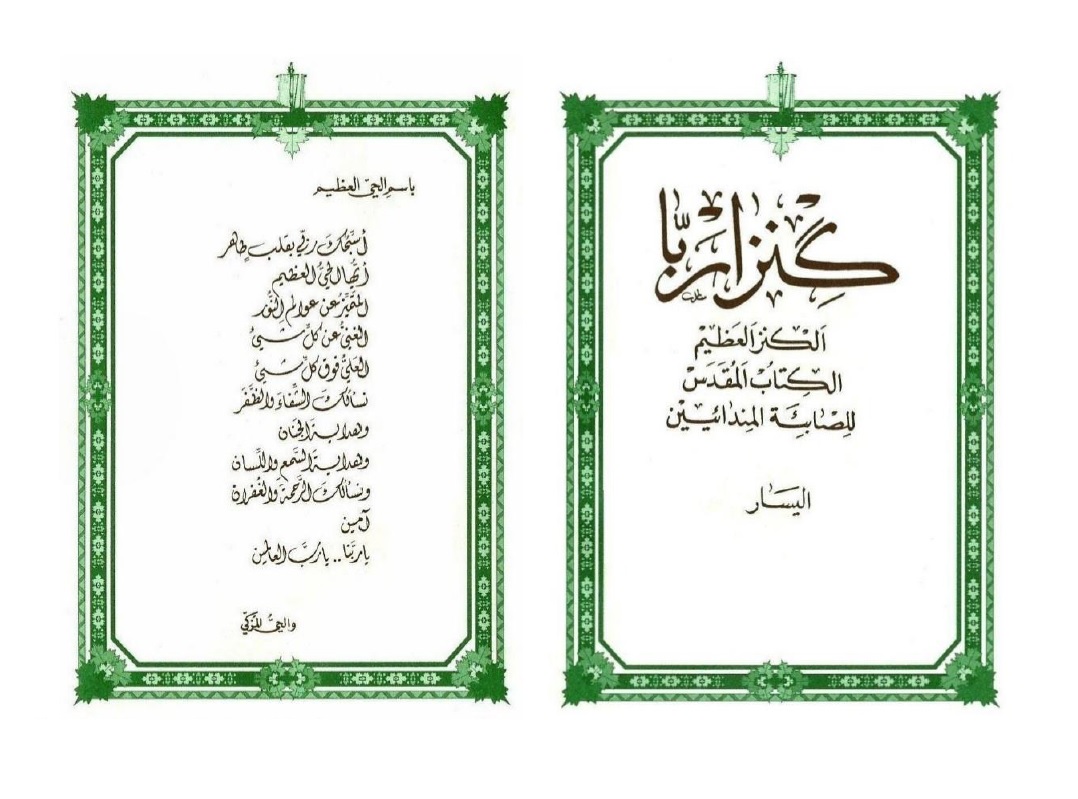 كنزا ربّا
الكنز العظيم
الكتاب المقدس
للصابئة المندائيين
اليسار
باسم الحيّ العظيم
أسبّحك ربّي بقلب طاهر
أيّها الحيُّ العظيم
المتميّز عن عوالم النُّور
الغنيُّ عن كلِّ شيئ
العليُّ فوق كلِّ شيئ
نسألك الشِّفاءَ والظَّفَر
وهداية الجَنان
وهداية السَّمعِ واللِّسان
ونسألك الرَّحمةَ والغُفران
آمين
ياربَّنا .. ياربَّ العالمين
والحيُّ المزكّي